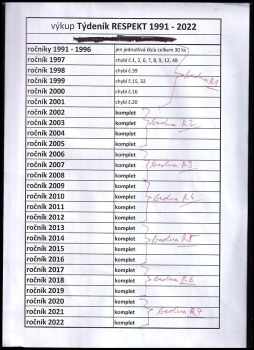 výkup Týdeník RESPEKT 1991 - 2022
ročníky 1991 - 1996 jen jednotlivá čísla celkem 30 ks
ročník 1997 chybí č.1, 2, 6, 7, 8, 9, 12, 48
ročník 1998 chybí č.39
ročník 1999 chybí č.15, 32
ročník 2000 chybí č.16
ročník 2001 chybí č.20
ročník 2002 komplet
ročník 2003 komplet
ročník 2004 komplet
ročník 2005 komplet
ročník 2006 komplet
ročník 2007 komplet
ročník 2008 komplet
ročník 2009 komplet
ročník 2010 komplet
ročník 2011 komplet
ročník 2012 komplet
ročník 2013 komplet
ročník 2014 komplet
ročník 2015 komplet
ročník 2016 komplet
ročník 2017 komplet
ročník 2018 komplet
ročník 2019 komplet
ročník 2020 komplet
ročník 2021 komplet
ročník 2022 komplet